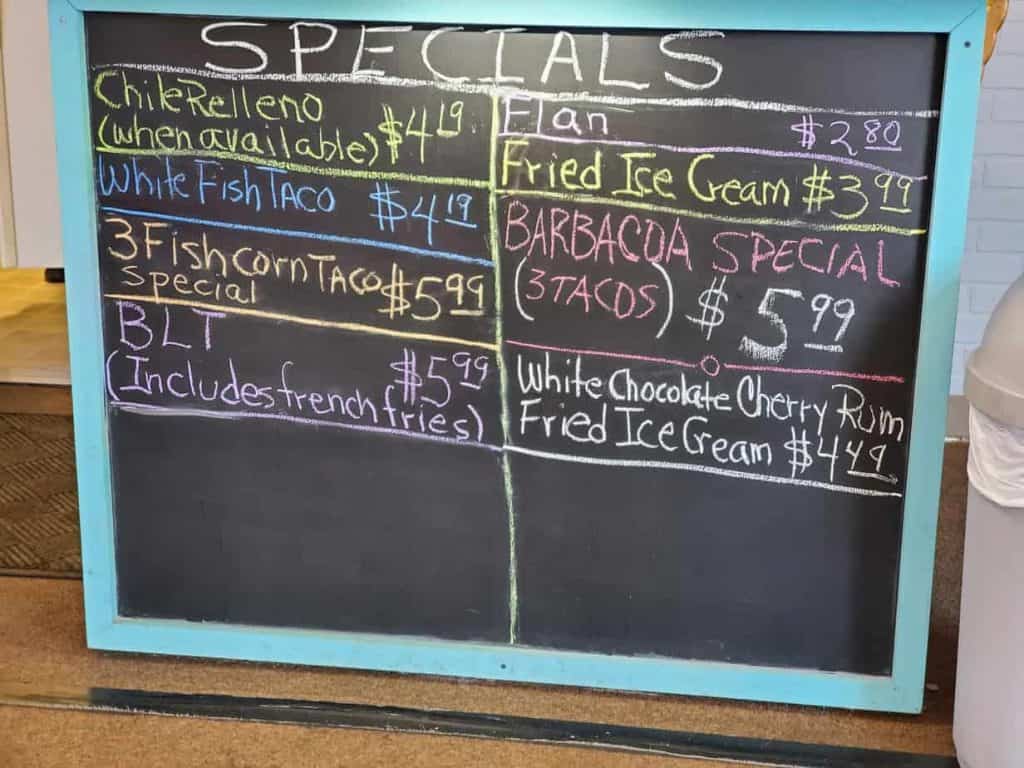 SPECIALS
Chile Relleno
(when available) $4.19
White Fish TACO $4.19
3 Fish corn TACO $5.99
Special
BLT
$5.99
(Includes french fries)
Flan $2.80
Fried Ice Cream $3.99
BARBACOA SPECIAL
(3 TACOS) $5.99
White Chocolate Cherry Rum
Fried Ice Cream $4.49